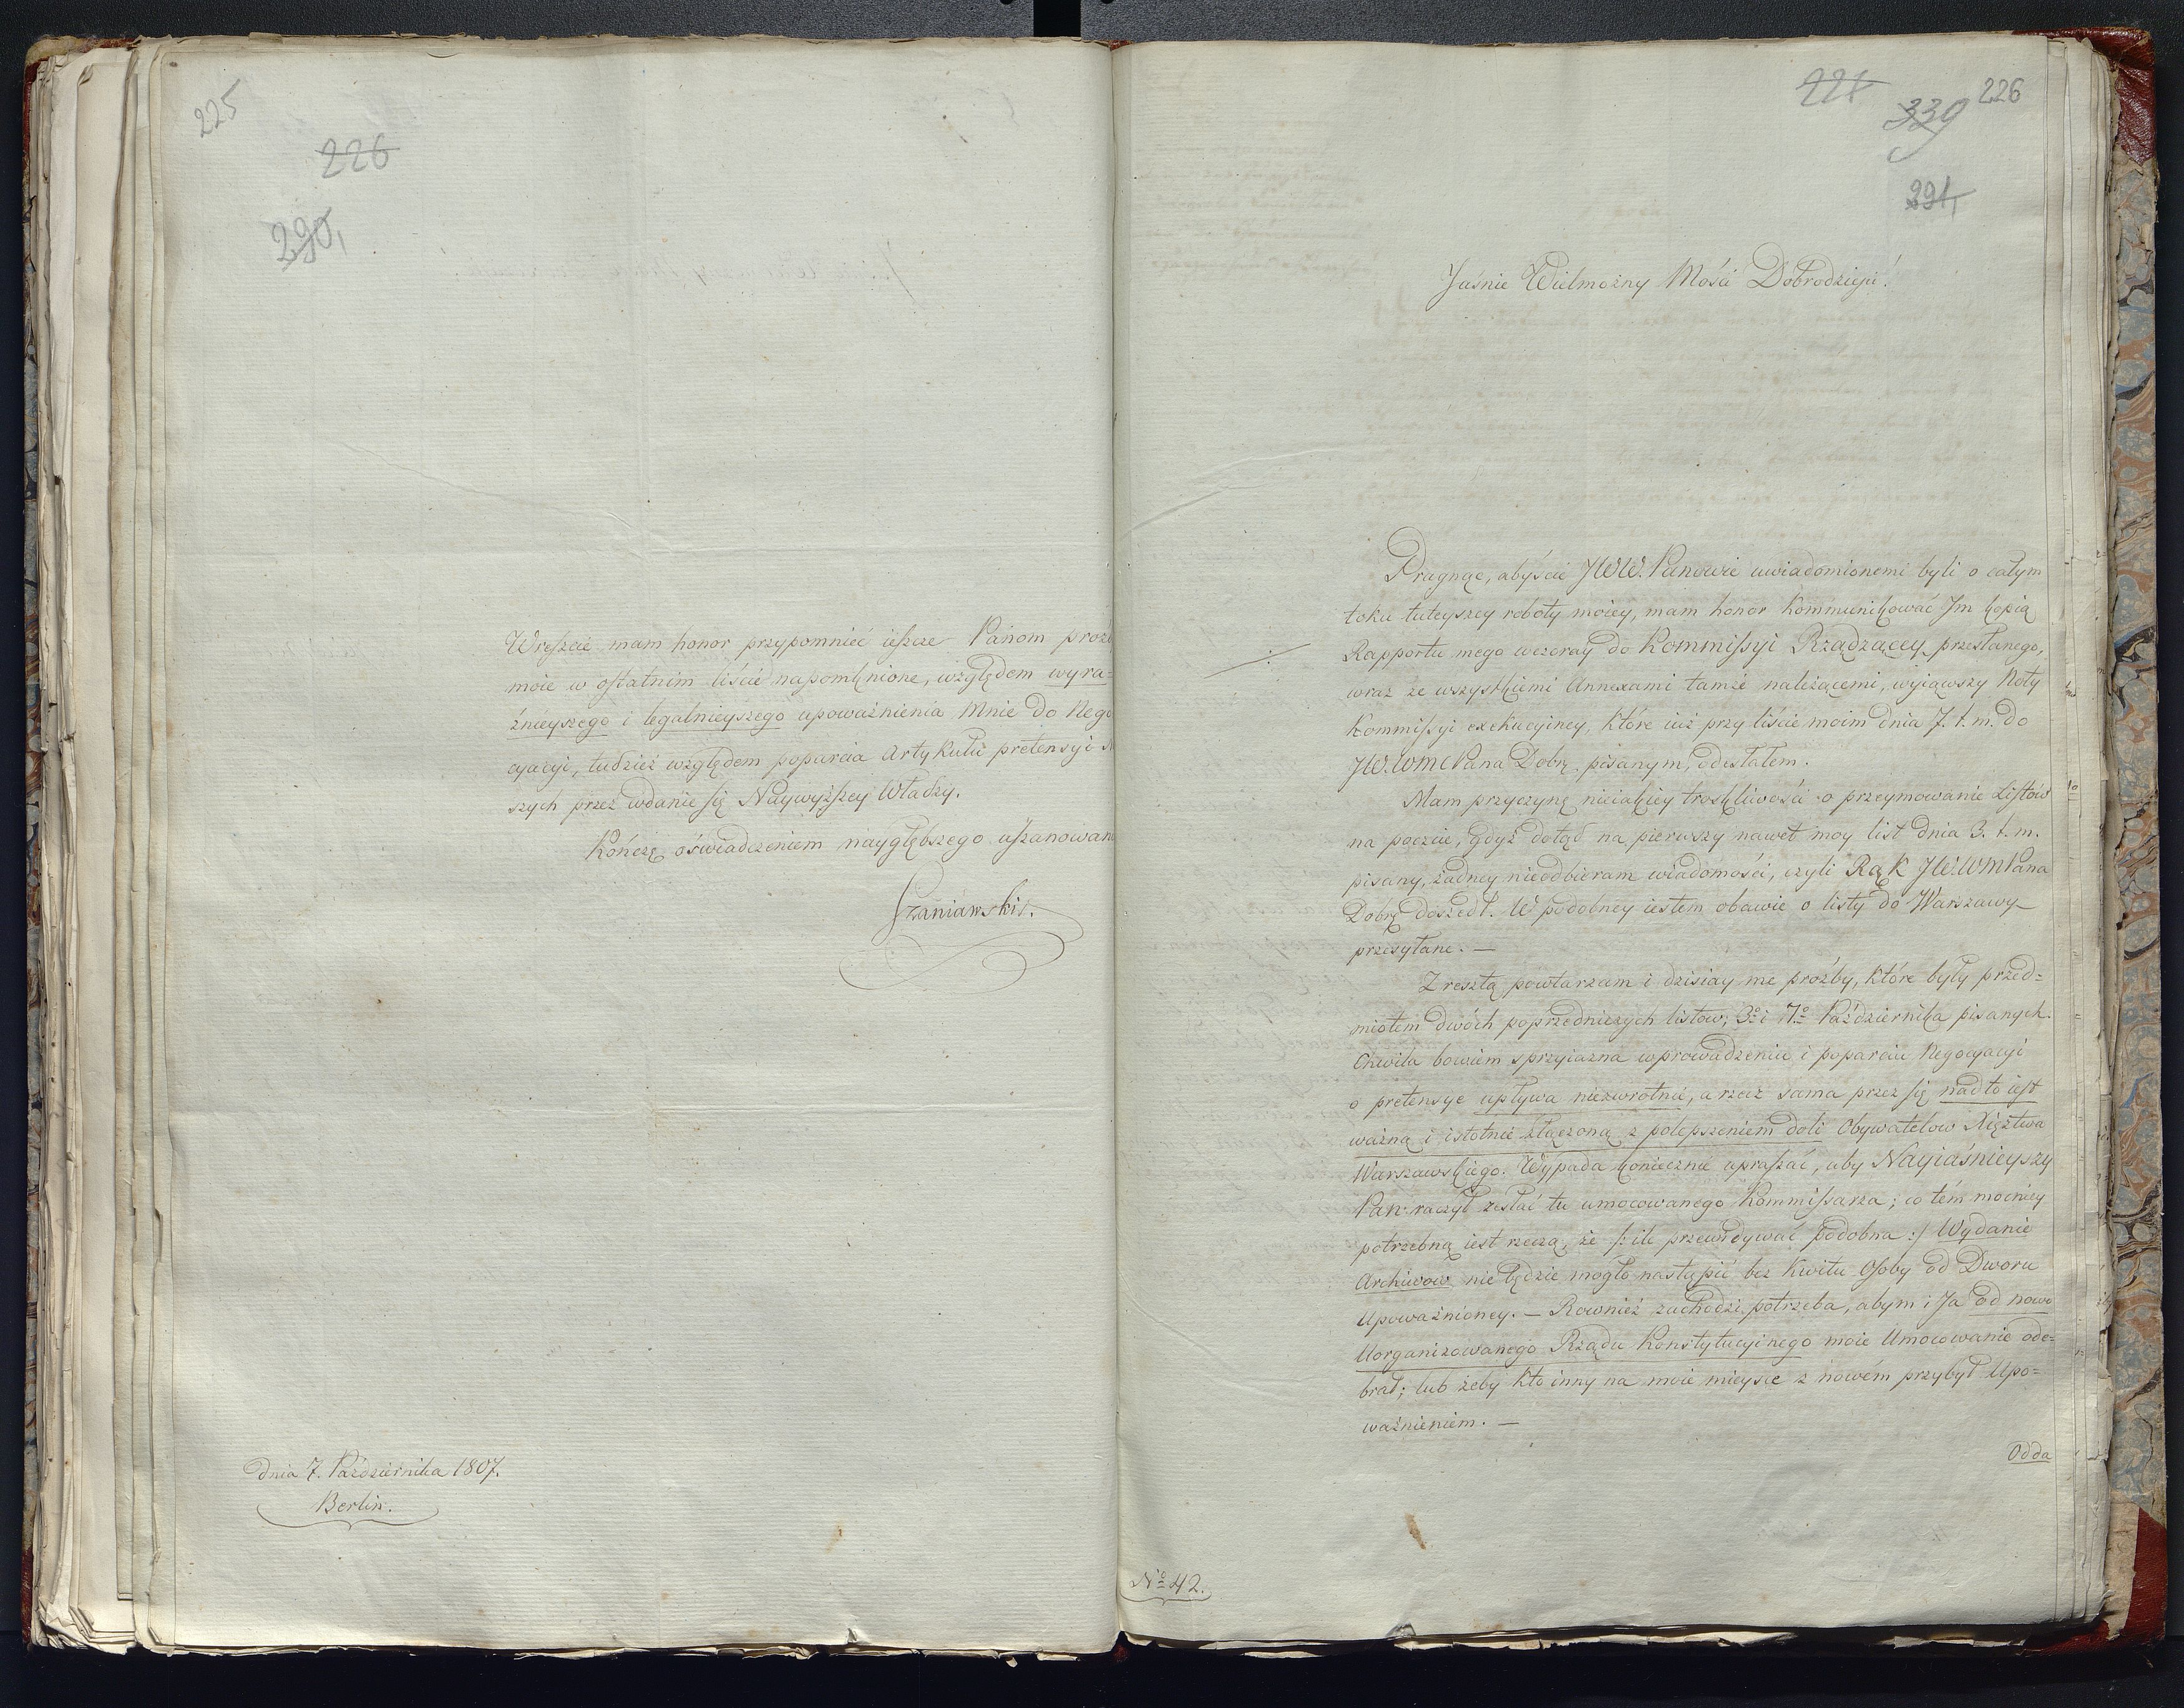 225
226
290,
Wreszcie mam honor przypomnieć ieszcze Panom proźb
moie w ostatnim liście napomknione, względem wyra=
źnieyszego i legalnieyszego upoważnienia Mnie do Nego
cyacyi, tudzież względem poparcia Artykułu pretensyi N
szych przez wdanie się Naywyższey Władzy.
Kończę oświadczeniem naygłębszego uszanowan
Szaniawski.
Dnia 7. Października 1807.
Berlin.
226
339
291,
Jaśnie Wielmożny Mości Dobrodzieju!
Pragnąc, abyście JWW. Panowie uwiadomionemi byli o całym
toku tuteyszey roboty moiey, mam honor Kommunikować Im kopią
Rapportu mego wczoray do Kommissyi Rządzącey przesłanego,
wraz ze wszystkiemi Annexami tamże należącemi, wyiąwszy Noty
Kommissyi exekucyiney, które iuż przy liście moim dnia 7. t. m. do
JW. WMPana Dobrz. pisanym, odesłałem.
Mam przyczynę nieiakiey troskliwości o przeymowanie Listów
na poczcie, gdyż dotąd na pierwszy nawet moy list dnia 3. t. m.
pisany, żadney nieodbieram wiadomości, czyli Rąk JW. WMPana
Dobrz. doszedł. W podobney iestem obawie o listy do Warszawy
przesyłane. —
Zresztą powtarzam i dzisiay me proźby, które były przed=
miotem dwóch poprzedniczych listow, 3º i 7º Października pisanych.
Chwila bowiem sprzyiazna wprowadzeniu i poparciu Negocyacyi
o pretensye upływa niezwrotnie, a rzecz sama przez się nadto iest
ważną i istotnie złączoną z polepszeniem doli Obywatelow Xięztwa
Warszawskiego. Wypada koniecznie upraszać, aby Nayiaśnieyszy
Pan raczył zesłać tu umocowanego Kommissarza; co tém mocniey
potrzebną iest rzeczą, że /: ile przewidywać podobna :/ Wydanie
Archiwow nie będzie mogło nastąpić bez Kwitu Osoby od Dworu
Upoważnioney. — Rownież zachodzi potrzeba, abym i Ja od nowo
Uorganizowanego Rządu Konstytucyinego moie Umocowanie ode=
brał; lub żeby kto inny na moie mieysce z nowém przybył Upo=
ważnieniem. —
Odda
Nº 42.